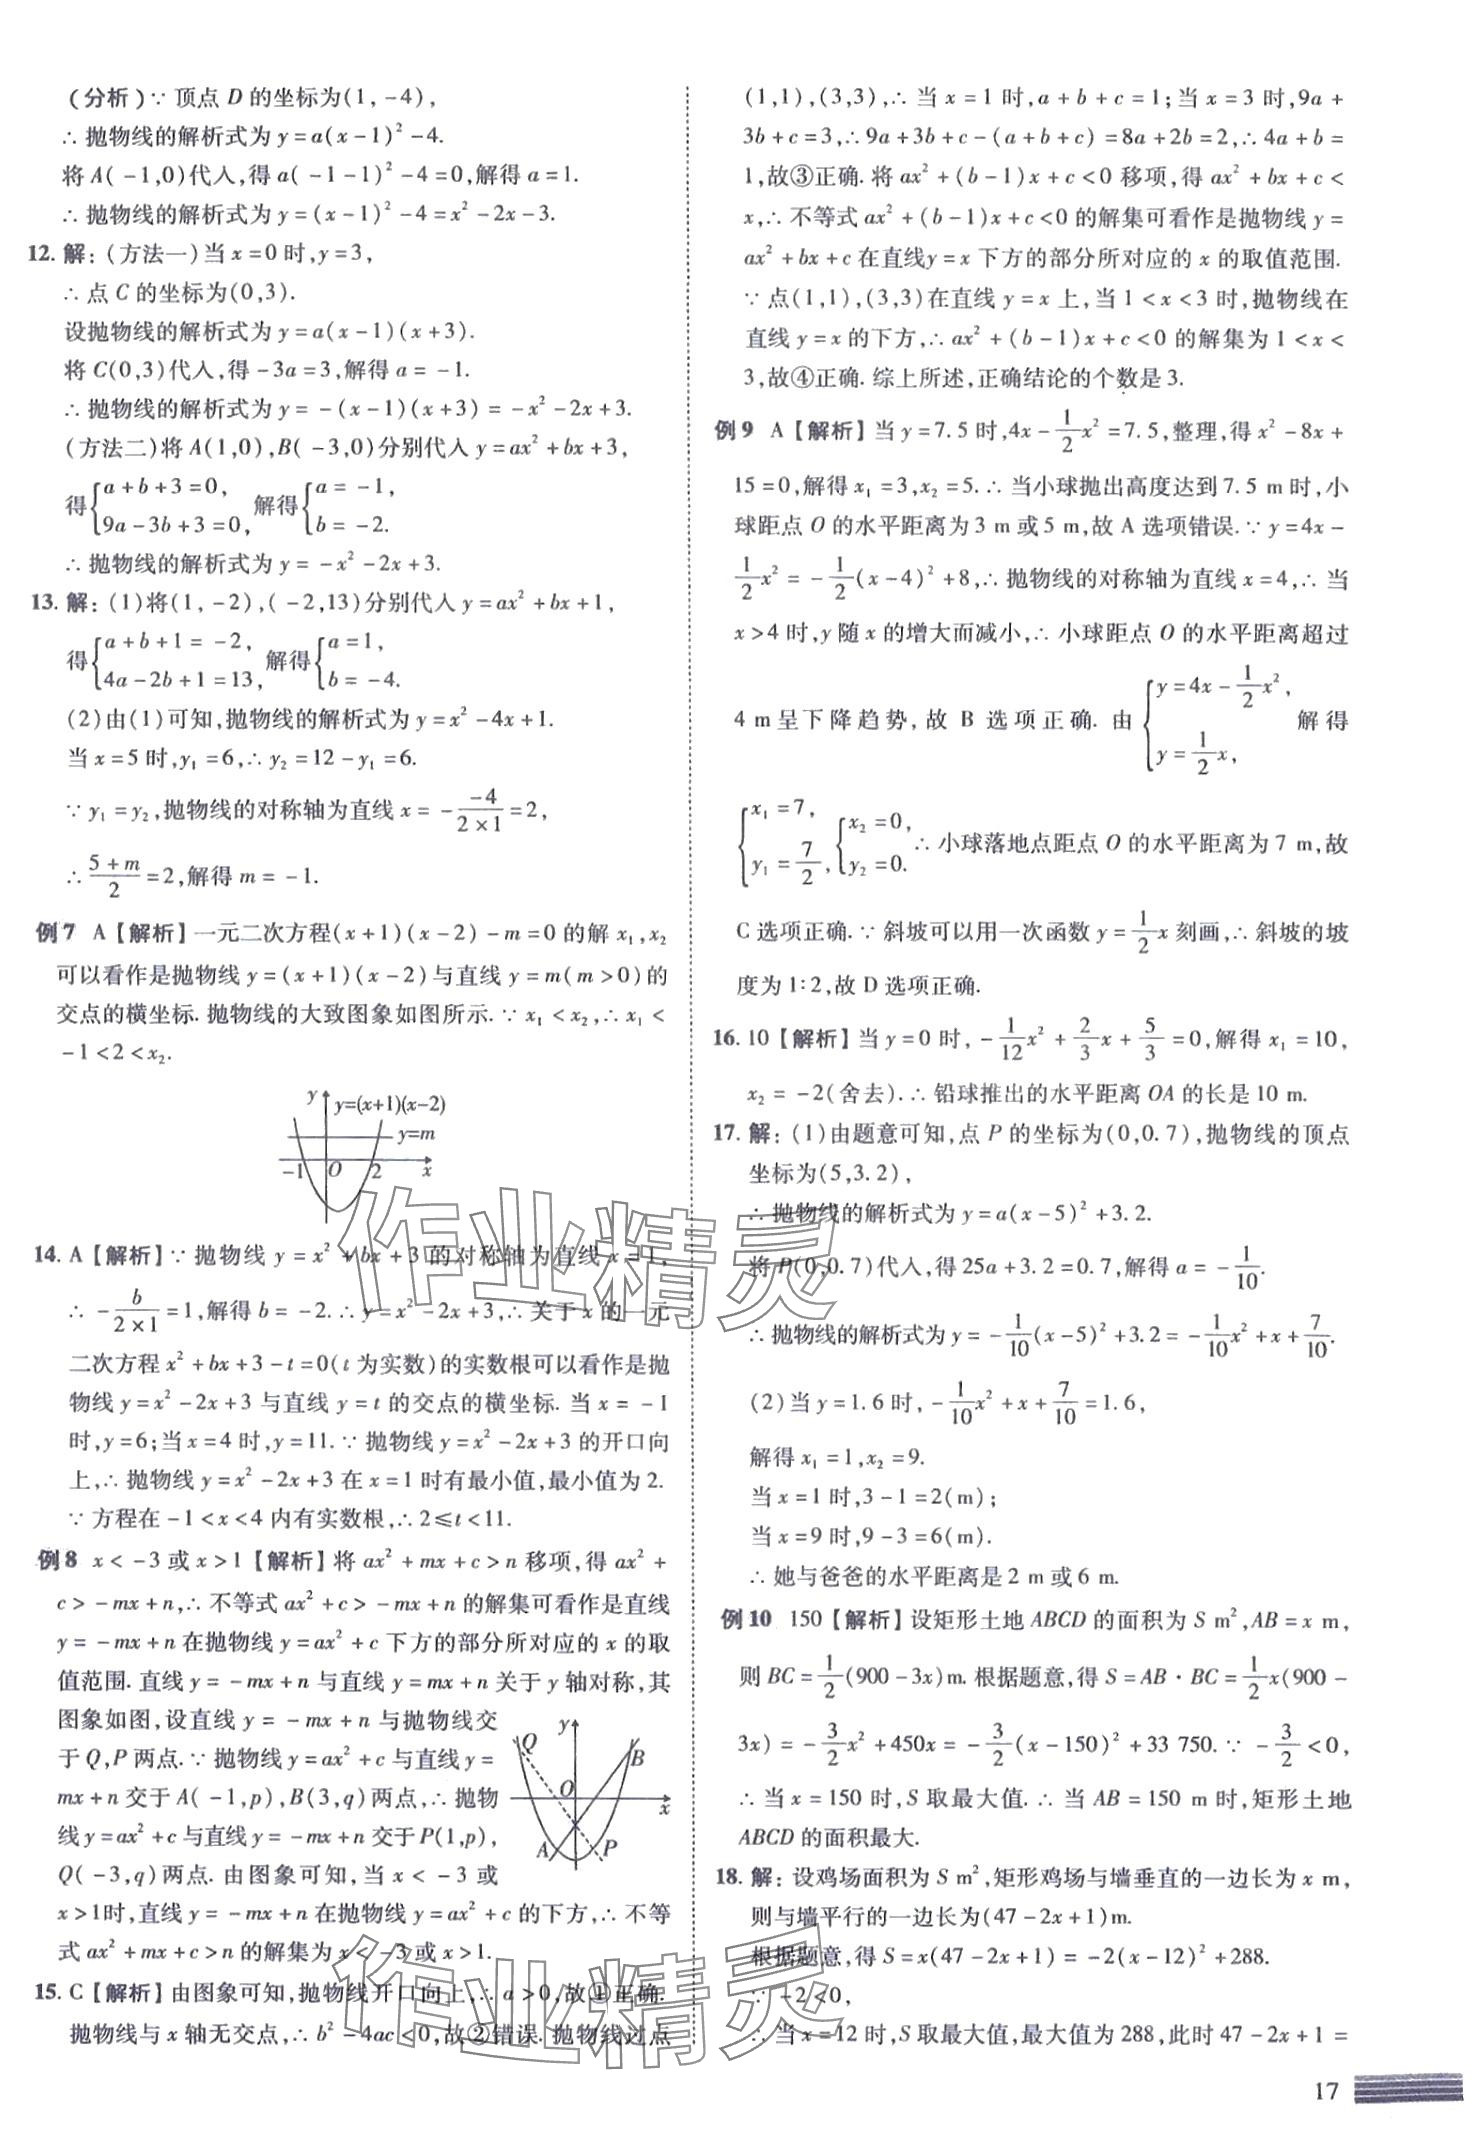 (分析)∵ 顶点 D 的坐标为(1, -4),
∴ 抛物线的解析式为 y=a(x-1)²-4.
将 A(-1,0)代入,得 a(-1-1)²-4=0,解得 a=1.
∴ 抛物线的解析式为 y=(x-1)²-4=x²-2x-3.
12. 解:(方法一)当 x=0 时,y=3,
∴ 点 C 的坐标为(0,3).
设抛物线的解析式为 y=a(x-1)(x+3).
将 C(0,3)代入,得 -3a=3,解得 a=-1.
∴ 抛物线的解析式为 y=-(x-1)(x+3)=-x²-2x+3.
(方法二)将 A(1,0),B(-3,0)分别代入 y=ax²+bx+3,
得{a+b+3=0, 9a-3b+3=0, 解得{a=-1, b=-2.
∴ 抛物线的解析式为 y=-x²-2x+3.
13. 解:(1)将(1,-2),(-2,13)分别代入 y=ax²+bx+1,
得{a+b+1=-2, 4a-2b+1=13, 解得{a=1, b=-4.
(2)由(1)可知,抛物线的解析式为 y=x²-4x+1.
当 x=5 时,y₁=6,∴ y₂=12-y₁=6.
∵ y₁=y₂,抛物线的对称轴为直线 x=-(-4)/(2×1)=2,
∴ (5+m)/2=2,解得 m=-1.
例7 A【解析】一元二次方程(x+1)(x-2)-m=0 的解 x₁,x₂
可以看作是抛物线 y=(x+1)(x-2)与直线 y=m(m>0)的
交点的横坐标. 抛物线的大致图象如图所示. ∵ x₁<x₂,∴ x₁<
-1<2<x₂.
y y=(x+1)(x-2)
y=m
-1 O 2 x
14. A【解析】∵ 抛物线 y=x²+bx+3 的对称轴为直线 x=1,
∴ -b/(2×1)=1,解得 b=-2. ∴ y=x²-2x+3,∴ 关于 x 的一元
二次方程 x²+bx+3-t=0(t 为实数)的实数根可以看作是抛
物线 y=x²-2x+3 与直线 y=t 的交点的横坐标. 当 x=-1
时,y=6;当 x=4 时,y=11. ∵ 抛物线 y=x²-2x+3 的开口向
上,∴ 抛物线 y=x²-2x+3 在 x=1 时有最小值,最小值为 2.
∵ 方程在 -1<x<4 内有实数根,∴ 2≤t<11.
例8 x<-3 或 x>1【解析】将 ax²+mx+c>n 移项,得 ax²+
c>-mx+n,∴ 不等式 ax²+c>-mx+n 的解集可看作是直线
y=-mx+n 在抛物线 y=ax²+c 下方的部分所对应的 x 的取
值范围. 直线 y=-mx+n 与直线 y=mx+n 关于 y 轴对称,其
图象如图,设直线 y=-mx+n 与抛物线交
于 Q,P 两点. ∵ 抛物线 y=ax²+c 与直线 y=
mx+n 交于 A(-1,p),B(3,q)两点,∴ 抛物
线 y=ax²+c 与直线 y=-mx+n 交于 P(1,p),
Q(-3,q)两点. 由图象可知,当 x<-3 或
x>1时,直线 y=-mx+n 在抛物线 y=ax²+c 的下方,∴ 不等
式 ax²+mx+c>n 的解集为 x<-3或 x>1.
Q y B
O x
A P
15. C【解析】由图象可知,抛物线开口向上,∴ a>0,故①正确.
抛物线与 x 轴无交点,∴ b²-4ac<0,故②错误. 抛物线过点
(1,1),(3,3),∴ 当 x=1 时,a+b+c=1;当 x=3 时,9a+
3b+c=3,∴ 9a+3b+c-(a+b+c)=8a+2b=2,∴ 4a+b=
1,故③正确. 将 ax²+(b-1)x+c<0 移项,得 ax²+bx+c<
x,∴ 不等式 ax²+(b-1)x+c<0 的解集可看作是抛物线 y=
ax²+bx+c 在直线y=x 下方的部分所对应的 x 的取值范围.
∵ 点(1,1),(3,3)在直线 y=x 上,当 1<x<3 时,抛物线在
直线 y=x 的下方,∴ ax²+(b-1)x+c<0 的解集为 1<x<
3,故④正确. 综上所述,正确结论的个数是 3.
例9 A【解析】当 y=7.5 时,4x-1/2x²=7.5,整理,得 x²-8x+
15=0,解得 x₁=3,x₂=5. ∴ 当小球抛出高度达到 7.5 m 时,小
球距点 O 的水平距离为 3 m 或 5 m,故 A 选项错误. ∵ y=4x-
1/2x²=-1/2(x-4)²+8,∴ 抛物线的对称轴为直线 x=4,∴ 当
x>4 时,y 随 x 的增大而减小,∴ 小球距点 O 的水平距离超过
4 m 呈下降趋势,故 B 选项正确. 由{y=4x-1/2x², y=1/2x, 解得
{x₁=7, y₁=7/2, {x₂=0, y₂=0. ∴ 小球落地点距点 O 的水平距离为 7 m,故
C 选项正确. ∵ 斜坡可以用一次函数 y=1/2x 刻画,∴ 斜坡的坡
度为 1:2,故 D 选项正确.
16. 10【解析】当 y=0 时,-1/12x²+2/3x+5/3=0,解得 x₁=10,
x₂=-2(舍去). ∴ 铅球推出的水平距离 OA 的长是 10 m.
17. 解:(1)由题意可知,点 P 的坐标为(0,0.7),抛物线的顶点
坐标为(5,3.2),
∴ 抛物线的解析式为 y=a(x-5)²+3.2.
将 P(0,0.7)代入,得 25a+3.2=0.7,解得 a=-1/10.
∴ 抛物线的解析式为 y=-1/10(x-5)²+3.2=-1/10x²+x+7/10.
(2)当 y=1.6 时,-1/10x²+x+7/10=1.6,
解得 x₁=1,x₂=9.
当 x=1 时,3-1=2(m);
当 x=9 时,9-3=6(m).
∴ 她与爸爸的水平距离是 2 m 或 6 m.
例10 150【解析】设矩形土地 ABCD 的面积为 S m²,AB=x m,
则 BC=1/2(900-3x)m. 根据题意,得 S=AB·BC=1/2x(900-
3x)=-3/2x²+450x=-3/2(x-150)²+33 750. ∵ -3/2<0,
∴ 当 x=150 时,S 取最大值. ∴ 当 AB=150 m 时,矩形土地
ABCD 的面积最大.
18. 解:设鸡场面积为 S m²,矩形鸡场与墙垂直的一边长为 x m,
则与墙平行的一边长为(47-2x+1)m.
根据题意,得 S=x(47-2x+1)=-2(x-12)²+288.
∵ -2<0,
∴ 当 x=12 时,S 取最大值,最大值为 288,此时 47-2x+1=
17
作业精灵
作业精灵